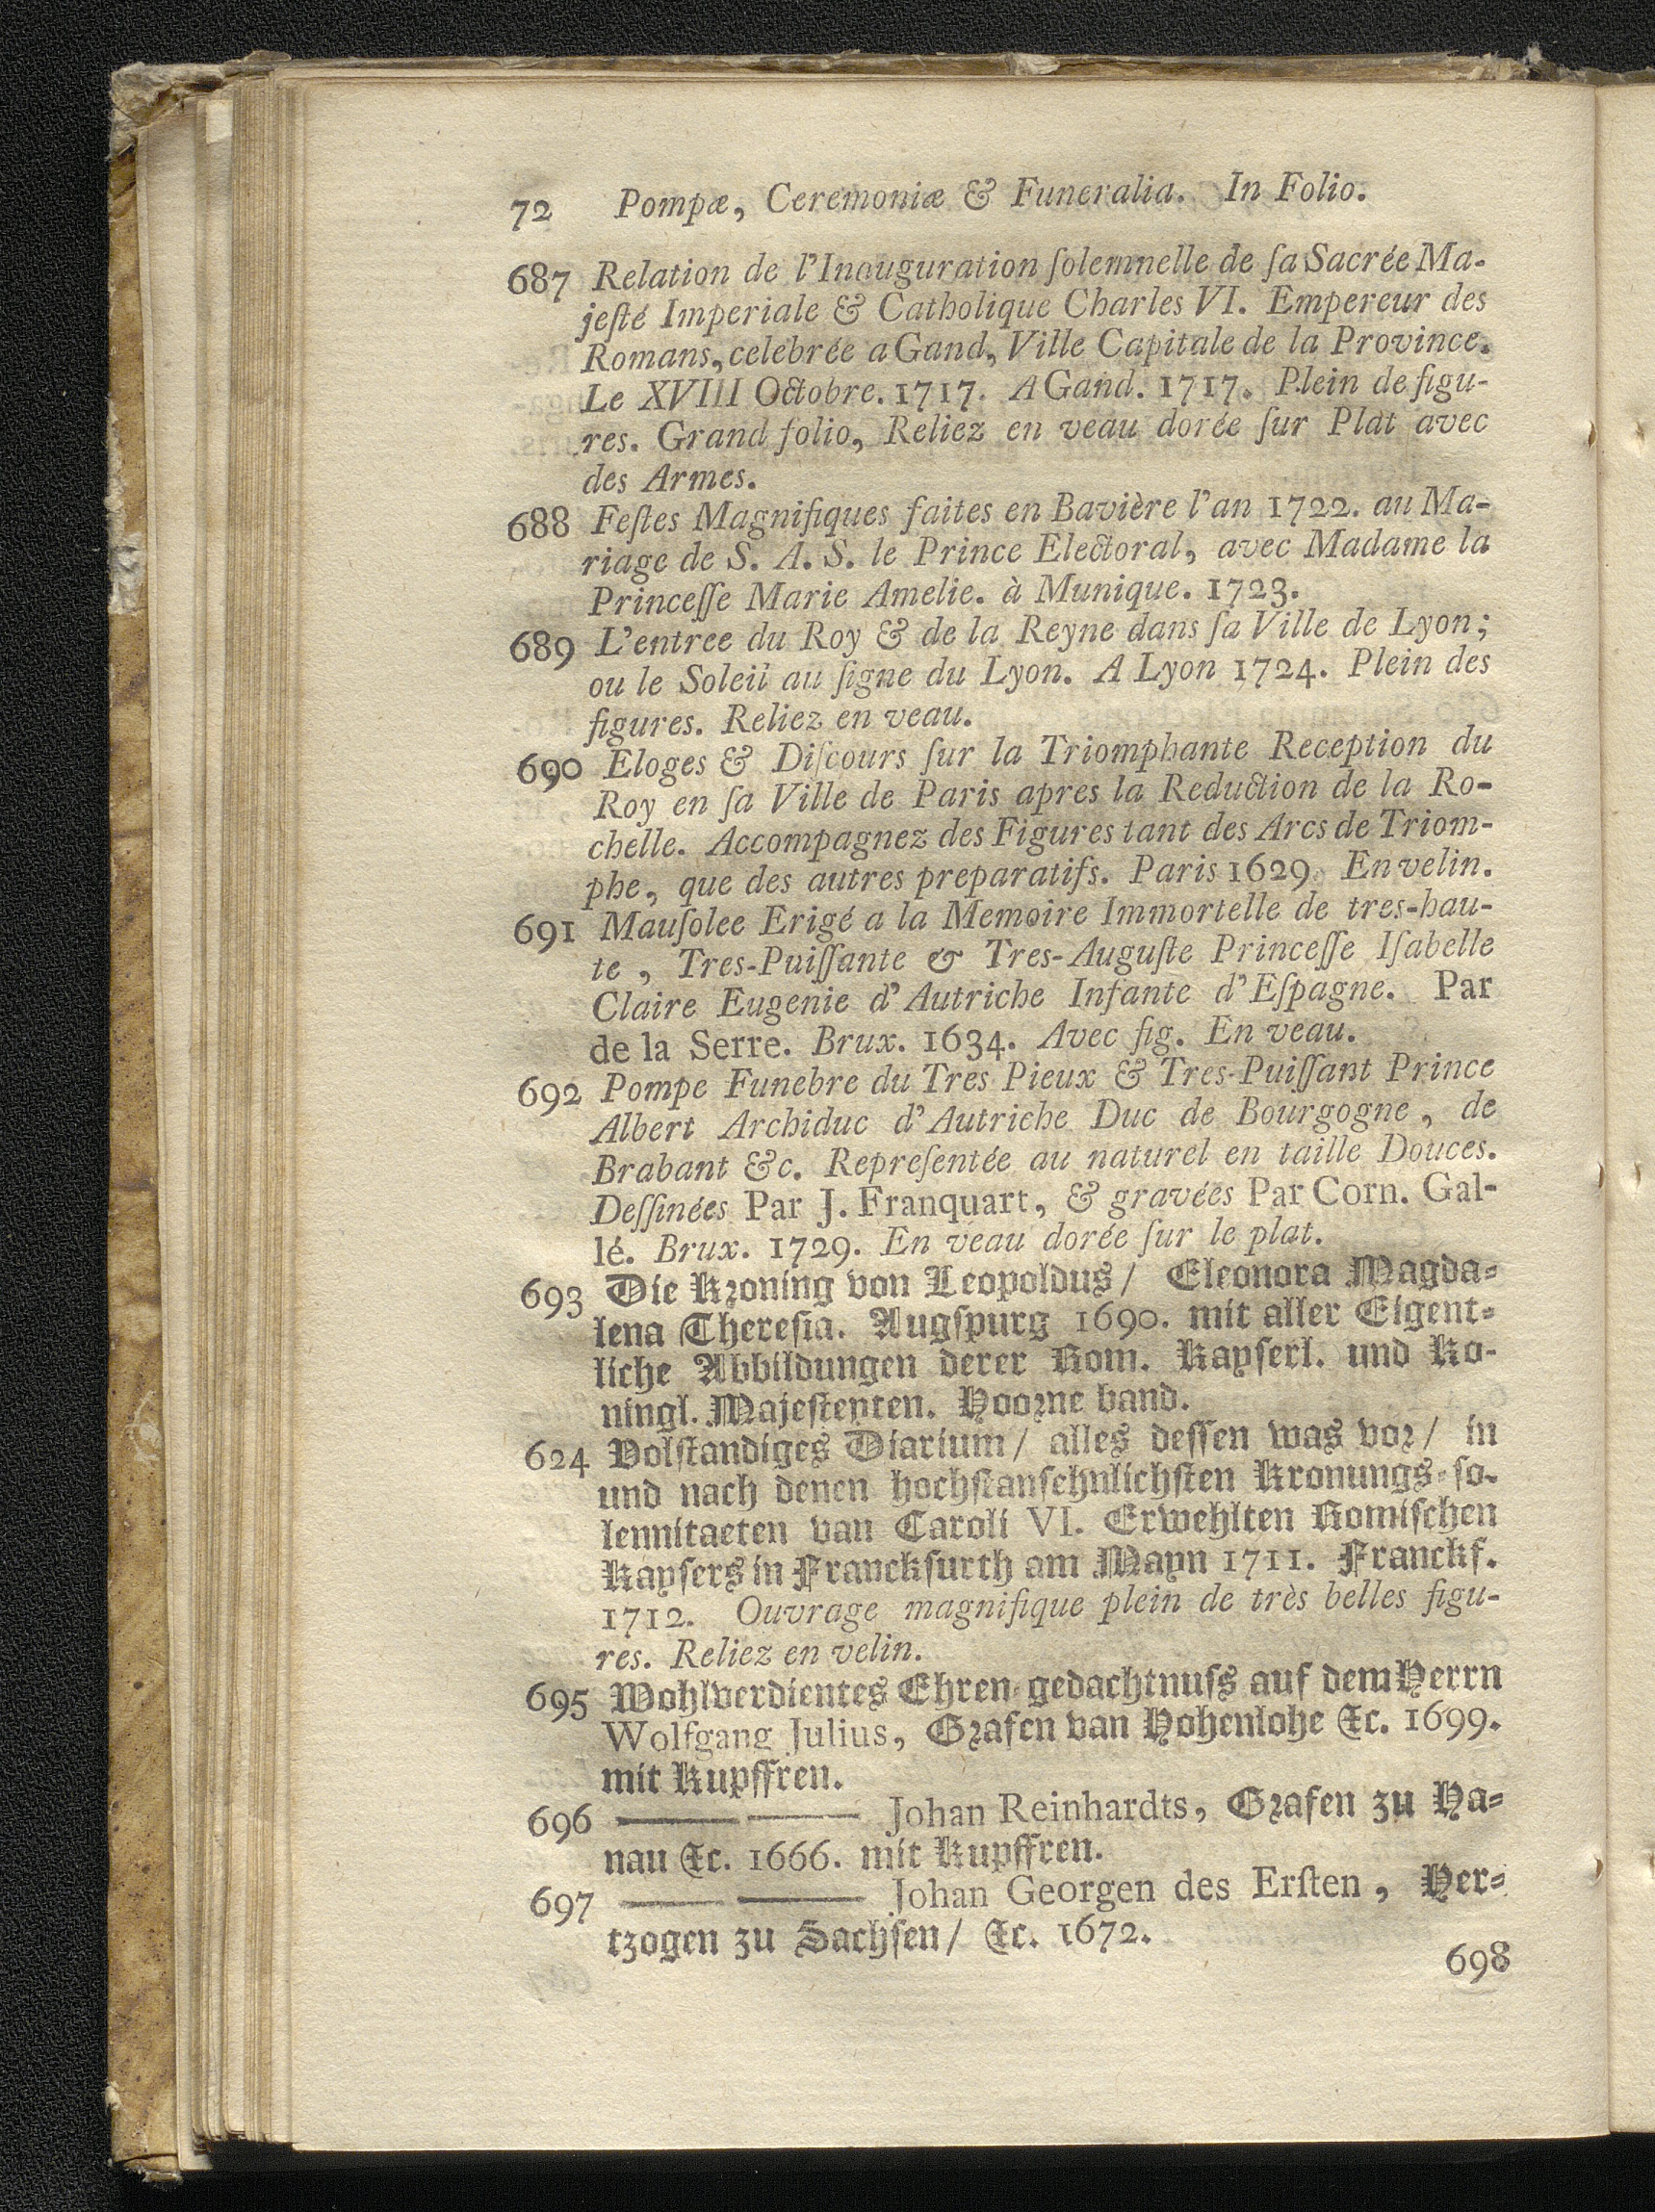 72 Pompæ, Ceremoniæ & Funeralia. In Folio.
687 Relation de l'Inauguration ſolemnelle de ſa Sacrée Ma-
jeſté Imperiale & Catholique Charles VI. Empereur des
Romans, celebrée a Gand, Ville Capitale de la Province.
Le XVIII Octobre. 1717. A Gand. 1717. Plein de figu-
res. Grand folio, Reliez en veau dorée ſur Plat avec
des Armes.
688 Feſtes Magnifiques faites en Bavière l'an 1722. au Ma-
riage de S. A. S. le Prince Electoral, avec Madame la
Princeſſe Marie Amelie. à Munique. 1723.
689 L'entree du Roy & de la Reyne dans ſa Ville de Lyon;
ou le Soleil au ſigne du Lyon. A Lyon 1724. Plein des
figures. Reliez en veau.
690 Eloges & Diſcours ſur la Triomphante Reception du
Roy en ſa Ville de Paris apres la Reduction de la Ro-
chelle. Accompagnez des Figures tant des Arcs de Triom-
phe, que des autres preparatifs. Paris 1629. En velin.
691 Mauſolee Erigé a la Memoire Immortelle de tres-hau-
te, Tres-Puiſſante & Tres-Auguſte Princeſſe Iſabelle
Claire Eugenie d'Autriche Infante d'Eſpagne. Par
de la Serre. Brux. 1634. Avec fig. En veau.
692 Pompe Funebre du Tres Pieux & Tres-Puiſſant Prince
Albert Archiduc d'Autriche Duc de Bourgogne, de
Brabant &c. Repreſentée au naturel en taille Douces.
Deſſinées Par J. Franquart, & gravées Par Corn. Gal-
lé. Brux. 1729. En veau dorée ſur le plat.
693 Die Kroning von Leopoldus / Eleonora Magda-
lena Thereſia. Augſpurg 1690. mit aller Eigent-
liche Abbildungen derer Rom. Kayſerl. und Ko-
ningl. Majeſteyten. Hoorne band.
624 Volſtandiges Diarium / alles deſſen was vor / in
und nach denen hochſtanſehnlichſten Kronungs-ſo-
lennitaeten van Caroli VI. Erwehlten Romiſchen
Kayſers in Franckfurth am Mayn 1711. Franckf.
1712. Ouvrage magnifique plein de très belles figu-
res. Reliez en velin.
695 Wohlverdientes Ehren-gedachtnuſs auf dem Herrn
Wolfgang Julius, Grafen van Hohenlohe &c. 1699.
mit Kupffren.
696 —— —— Johan Reinhardts, Grafen zu Ha-
nau &c. 1666. mit Kupffren.
697 —— —— Johan Georgen des Erſten, Her-
tzogen zu Sachſen / &c. 1672.
698